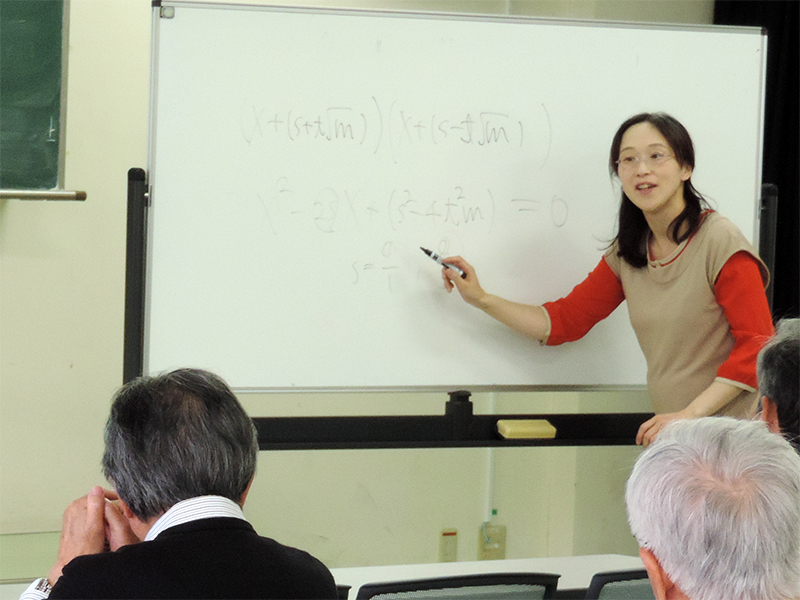 (X+(s+t√m))(X+(s-t√m))
X²-2sX+(s²-4t²m)=0
s=